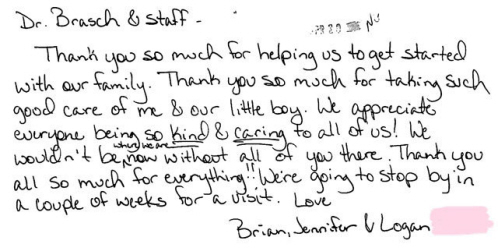 Dr. Brasch & staff -
APR 20
Thank you so much for helping us to get started
with our family. Thank you so much for taking such
good care of me & our little boy. We appreciate
everyone being so kind & caring to all of us! We
where we are
wouldn't be, now without all of you there. Thank you
all so much for everything!! We're going to stop by in
a couple of weeks for a visit. Love
Brian, Jennifer & Logan